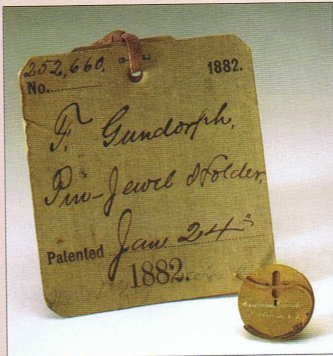 252,660.
No. 1882.
F. Gundorph,
Pin-Jewel Holder,
Patented June 24
1882.